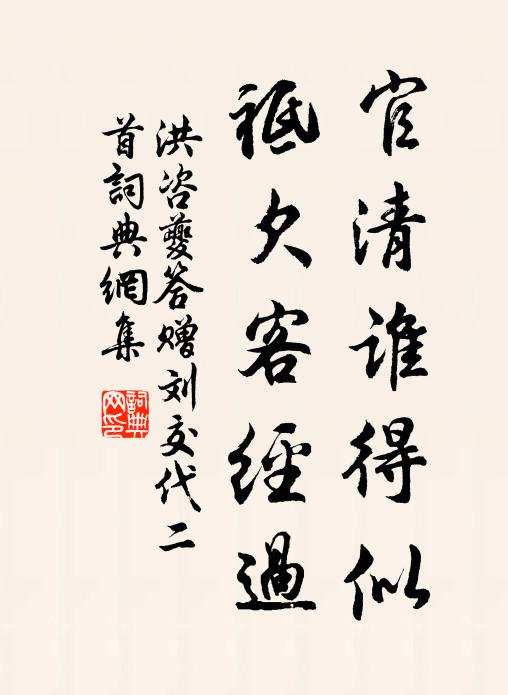 官清谁得似
祗欠客經過
洪咨夔答赠刘交代二
首詞典網集
詞典
网印